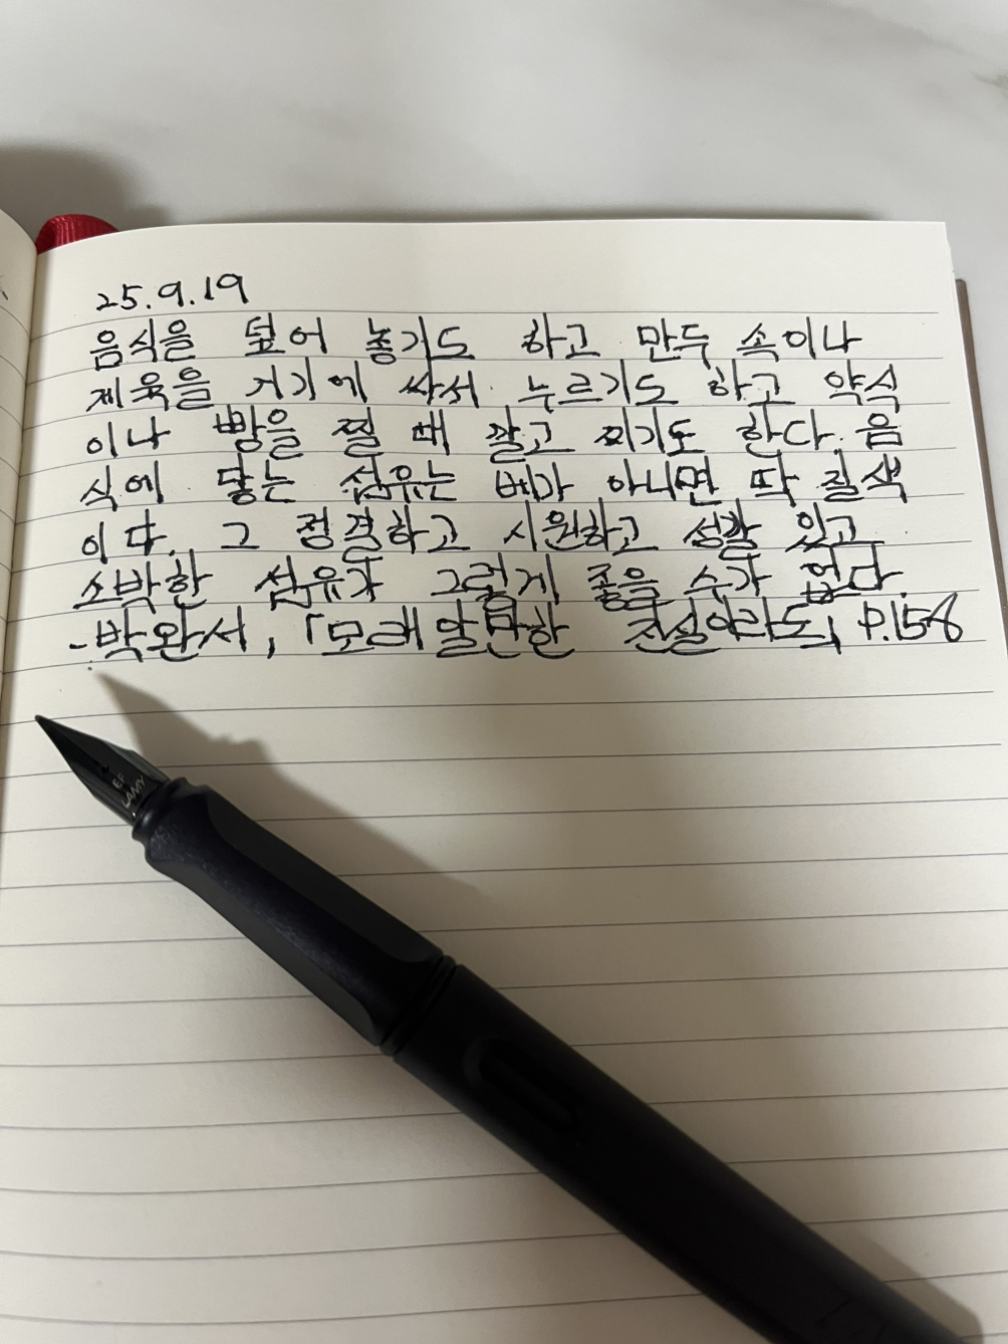 25.9.19
음식을 덮어 놓기도 하고 만두 속이나
제육을 거기에 싸서 누르기도 하고 약식
이나 빵을 찔 때 깔고 찌기도 한다. 음
식에 닿는 섬유는 베가 아니면 딱 질색
이다. 그 정결하고 시원하고 성깔 있고
소박한 섬유가 그렇게 좋을 수가 없다.
-박완서, 「모래알만한 진실이라도」 p.158
EF
LAMY